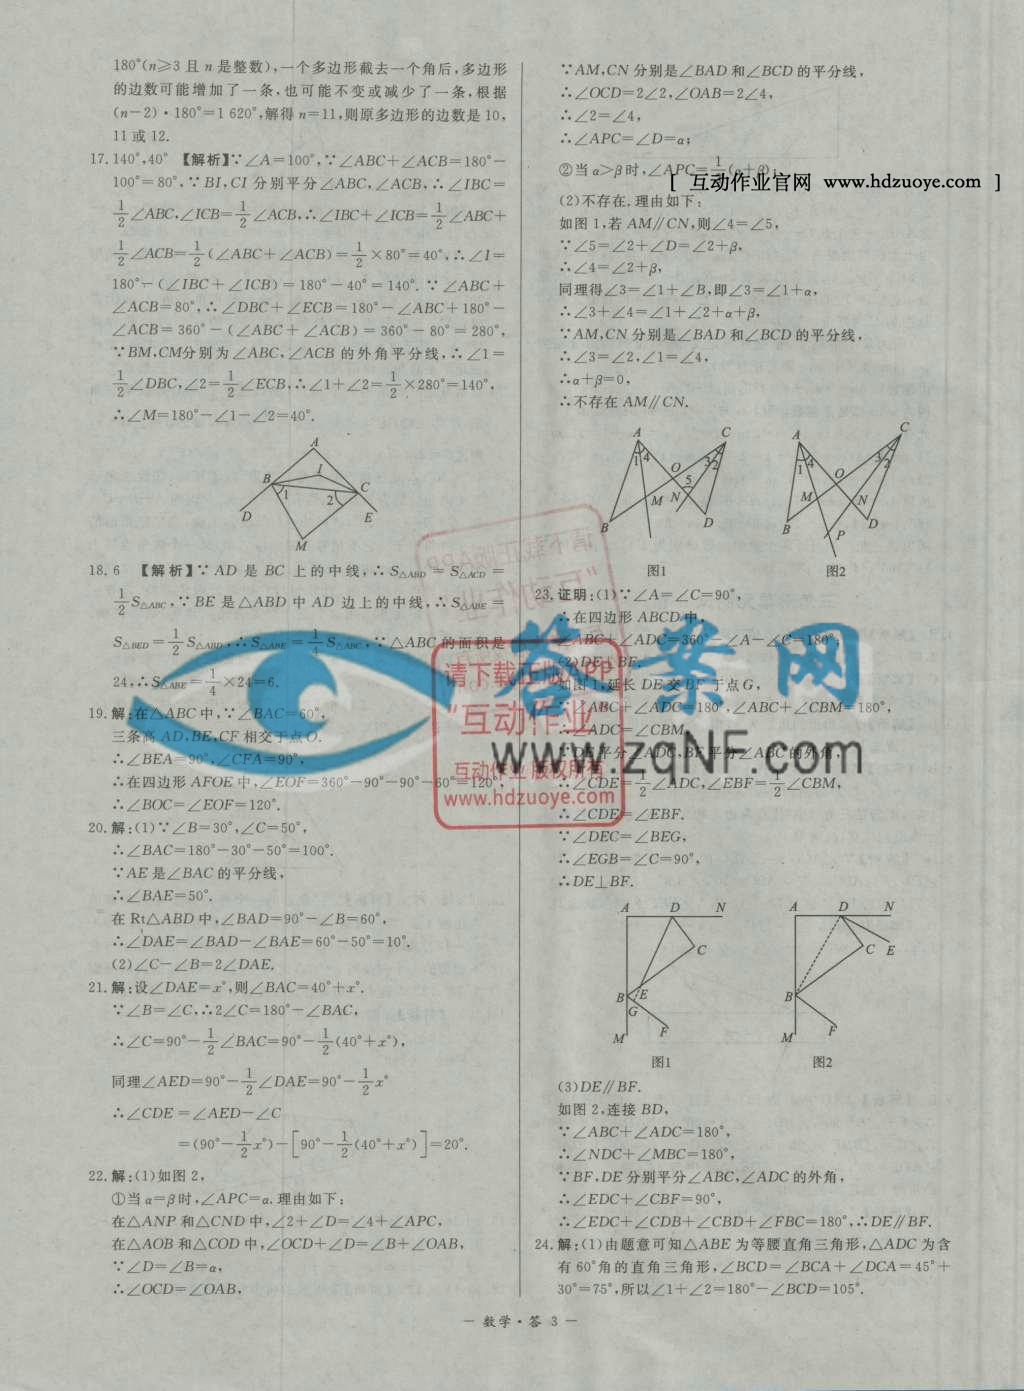 180°(n≥3 且 n 是整数),一个多边形截去一个角后,多边形
的边数可能增加了一条,也可能不变或减少了一条,根据
(n−2)·180°=1 620°,解得 n=11,则原多边形的边数是 10,
11 或 12.
17. 140°,40° 【解析】∵∠A=100°,∵∠ABC+∠ACB=180°−
100°=80°,∵BI,CI 分别平分∠ABC,∠ACB,∴∠IBC=
1/2∠ABC,∠ICB=1/2∠ACB,∴∠IBC+∠ICB=1/2∠ABC+
1/2∠ACB=1/2(∠ABC+∠ACB)=1/2×80°=40°,∴∠I=
180°−(∠IBC+∠ICB)=180°−40°=140°. ∵∠ABC+
∠ACB=80°,∴∠DBC+∠ECB=180°−∠ABC+180°−
∠ACB=360°−(∠ABC+∠ACB)=360°−80°=280°,
∵BM,CM分别为∠ABC,∠ACB 的外角平分线,∴∠1=
1/2∠DBC,∠2=1/2∠ECB,∴∠1+∠2=1/2×280°=140°,
∴∠M=180°−∠1−∠2=40°.
A
B I C
1 2
D E
M
18. 6 【解析】∵AD 是 BC 上的中线,∴S△ABD=S△ACD=
1/2S△ABC,∵BE 是△ABD 中 AD 边上的中线,∴S△ABE=
S△BED=1/2S△ABD,∴S△ABE=1/4S△ABC,∵△ABC 的面积是
24,∴S△ABE=1/4×24=6.
19. 解:在△ABC 中,∵∠BAC=60°,
三条高 AD,BE,CF 相交于点 O.
∴∠BEA=90°,∠CFA=90°,
∴在四边形 AFOE 中,∠EOF=360°−90°−90°−60°=120°,
∴∠BOC=∠EOF=120°.
20. 解:(1)∵∠B=30°,∠C=50°,
∴∠BAC=180°−30°−50°=100°.
∵AE 是∠BAC 的平分线,
∴∠BAE=50°.
在 Rt△ABD 中,∠BAD=90°−∠B=60°,
∴∠DAE=∠BAD−∠BAE=60°−50°=10°.
(2)∠C−∠B=2∠DAE.
21. 解:设∠DAE=x°,则∠BAC=40°+x°.
∵∠B=∠C,∴2∠C=180°−∠BAC,
∴∠C=90°−1/2∠BAC=90°−1/2(40°+x°),
同理∠AED=90°−1/2∠DAE=90°−1/2x°
∴∠CDE=∠AED−∠C
=(90°−1/2x°)−[90°−1/2(40°+x°)]=20°.
22. 解:(1)如图 2,
①当 α=β时,∠APC=α.理由如下:
在△ANP 和△CND 中,∠2+∠D=∠4+∠APC,
在△AOB 和△COD 中,∠OCD+∠D=∠B+∠OAB,
∵∠D=∠B=α,
∴∠OCD=∠OAB,
∵AM,CN 分别是∠BAD 和∠BCD 的平分线,
∴∠OCD=2∠2,∠OAB=2∠4,
∴∠2=∠4,
∴∠APC=∠D=α;
②当 α>β时,∠APC=1/2(α+β);
[ 互动作业官网 www.hdzuoye.com ]
(2)不存在. 理由如下:
如图 1,若 AM∥CN,则∠4=∠5,
∵∠5=∠2+∠D=∠2+β,
∴∠4=∠2+β,
同理得∠3=∠1+∠B,即∠3=∠1+α,
∴∠3+∠4=∠1+∠2+α+β,
∵AM,CN 分别是∠BAD 和∠BCD 的平分线,
∴∠3=∠2,∠1=∠4,
∴α+β=0,
∴不存在 AM∥CN.
A C
1 4 O 3 2
5
M N
B D
图1
A C
1 4 O 3 2
M N
B P D
图2
23. 证明:(1)∵∠A=∠C=90°,
∴在四边形 ABCD 中,
∠ABC+∠ADC=360°−∠A−∠C=180°;
(2)DE⊥BF.
如图 1,延长 DE 交 BF 于点 G,
∵∠ABC+∠ADC=180°,∠ABC+∠CBM=180°,
∴∠ADC=∠CBM,
∵DE平分∠ADC,BF平分∠ABC的外角,
∴∠CDE=1/2∠ADC,∠EBF=1/2∠CBM,
∴∠CDE=∠EBF.
∵∠DEC=∠BEG,
∴∠EGB=∠C=90°,
∴DE⊥BF.
A D N
C
B E
G
M F
图1
A D N
C E
B
M F
图2
(3)DE∥BF.
如图 2,连接 BD,
∵∠ABC+∠ADC=180°,
∴∠NDC+∠MBC=180°,
∵BF,DE 分别平分∠ABC,∠ADC 的外角,
∴∠EDC+∠CBF=90°,
∴∠EDC+∠CDB+∠CBD+∠FBC=180°,∴DE∥BF.
24. 解:(1)由题意可知△ABE 为等腰直角三角形,△ADC 为含
有 60°角的直角三角形,∠BCD=∠BCA+∠DCA=45°+
30°=75°,所以∠1+∠2=180°−∠BCD=105°.
— 数学·答 3 —
答案网
www.zqNF.com
请下载正版APP
"互动作业"
互动作业 版权所有
www.hdzuoye.com
请下载正版APP
"互动作业"